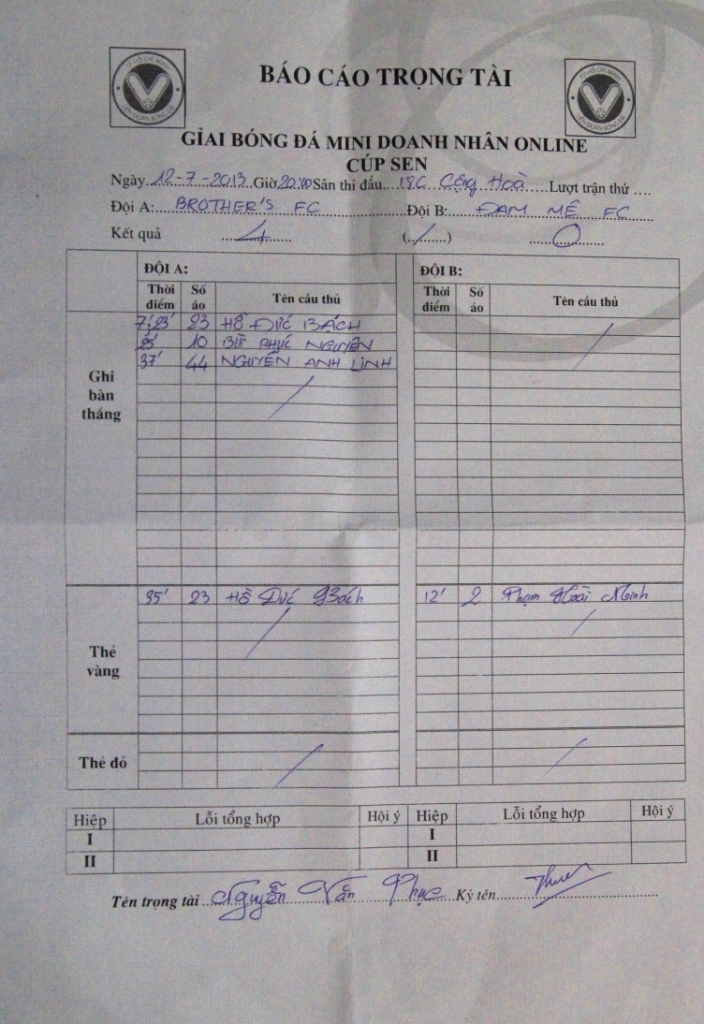 BÁO CÁO TRỌNG TÀI
GIẢI BÓNG ĐÁ MINI DOANH NHÂN ONLINE
CÚP SEN
Ngày 12-7-2013 Giờ 20:00 Sân thi đấu 18C Cộng Hoà Lượt trận thứ ....
Đội A: BROTHER'S FC Đội B: ĐAM MÊ FC
Kết quả 4 (/) 0
ĐỘI A: ĐỘI B:
Thời điểm Số áo Tên cầu thủ Thời điểm Số áo Tên cầu thủ
Ghi bàn thắng
7', 23' 23 HỒ ĐỨC BÁCH
25' 10 BÙI PHÚC NGUYÊN
37' 44 NGUYỄN ANH LINH
Thẻ vàng
35' 23 Hồ Đức Bách 12' 2 Phạm Hoài Minh
Thẻ đỏ
Hiệp Lỗi tổng hợp Hội ý Hiệp Lỗi tổng hợp Hội ý
I I
II II
Tên trọng tài Nguyễn Văn Phục Ký tên